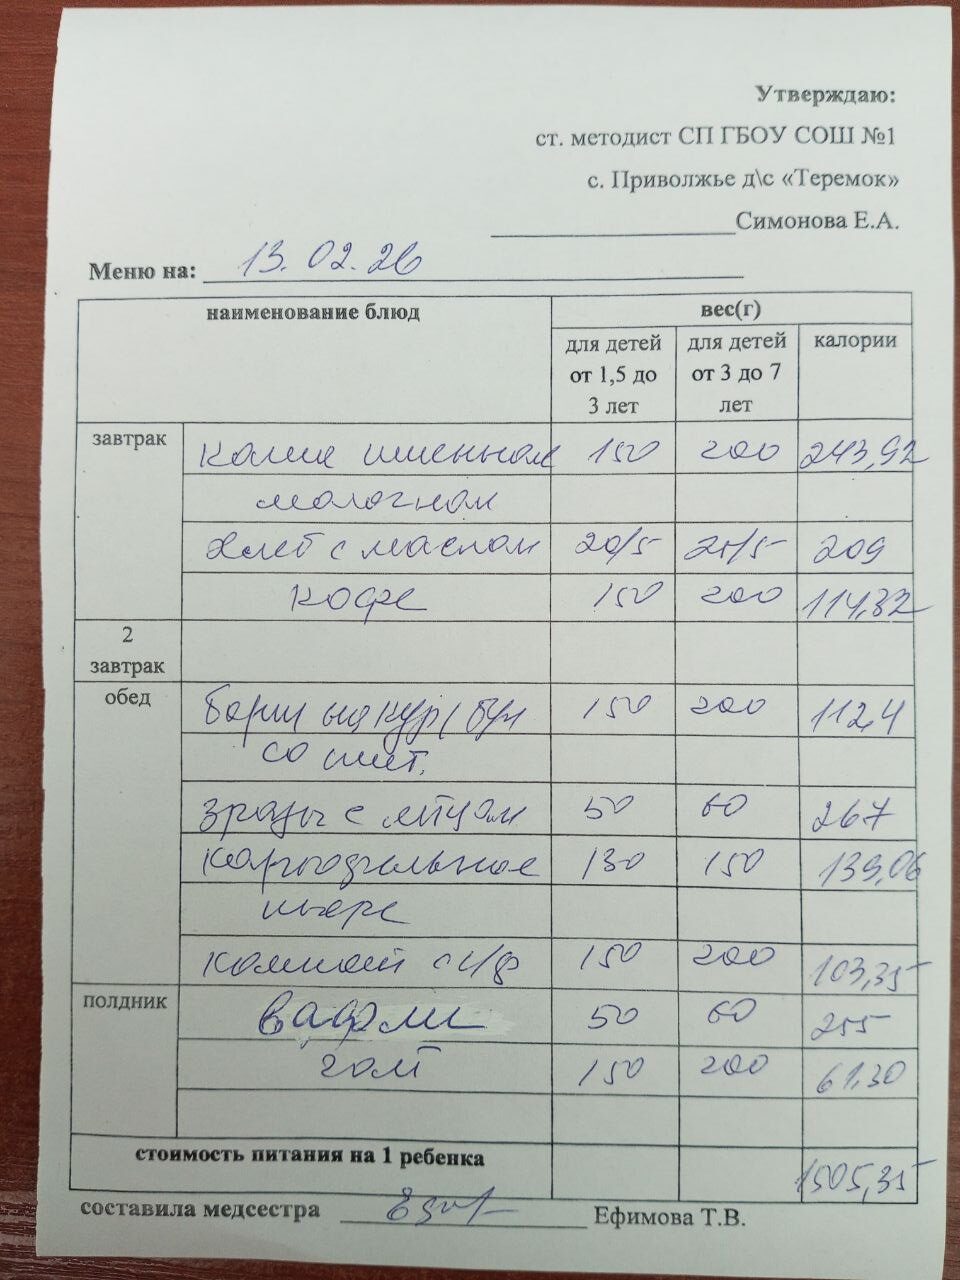 Утверждаю:
ст. методист СП ГБОУ СОШ №1
с. Приволжье д\с «Теремок»
Симонова Е.А.
Меню на: 13.02.26
наименование блюд вес(г)
для детей от 1,5 до 3 лет для детей от 3 до 7 лет калории
завтрак каша пшенная 150 200 243,92
молочная
хлеб с маслом 20/5 25/5 209
кофе 150 200 114,32
2 завтрак
обед борщ на кур/бул 150 200 112,4
со смет.
зразы с яйцом 50 60 267
картофельное 130 150 139,06
пюре
компот с/ф 150 200 103,35
полдник вафли 50 60 255
чай 150 200 61,30
стоимость питания на 1 ребенка 1505,35
составила медсестра Ефимова Т.В.